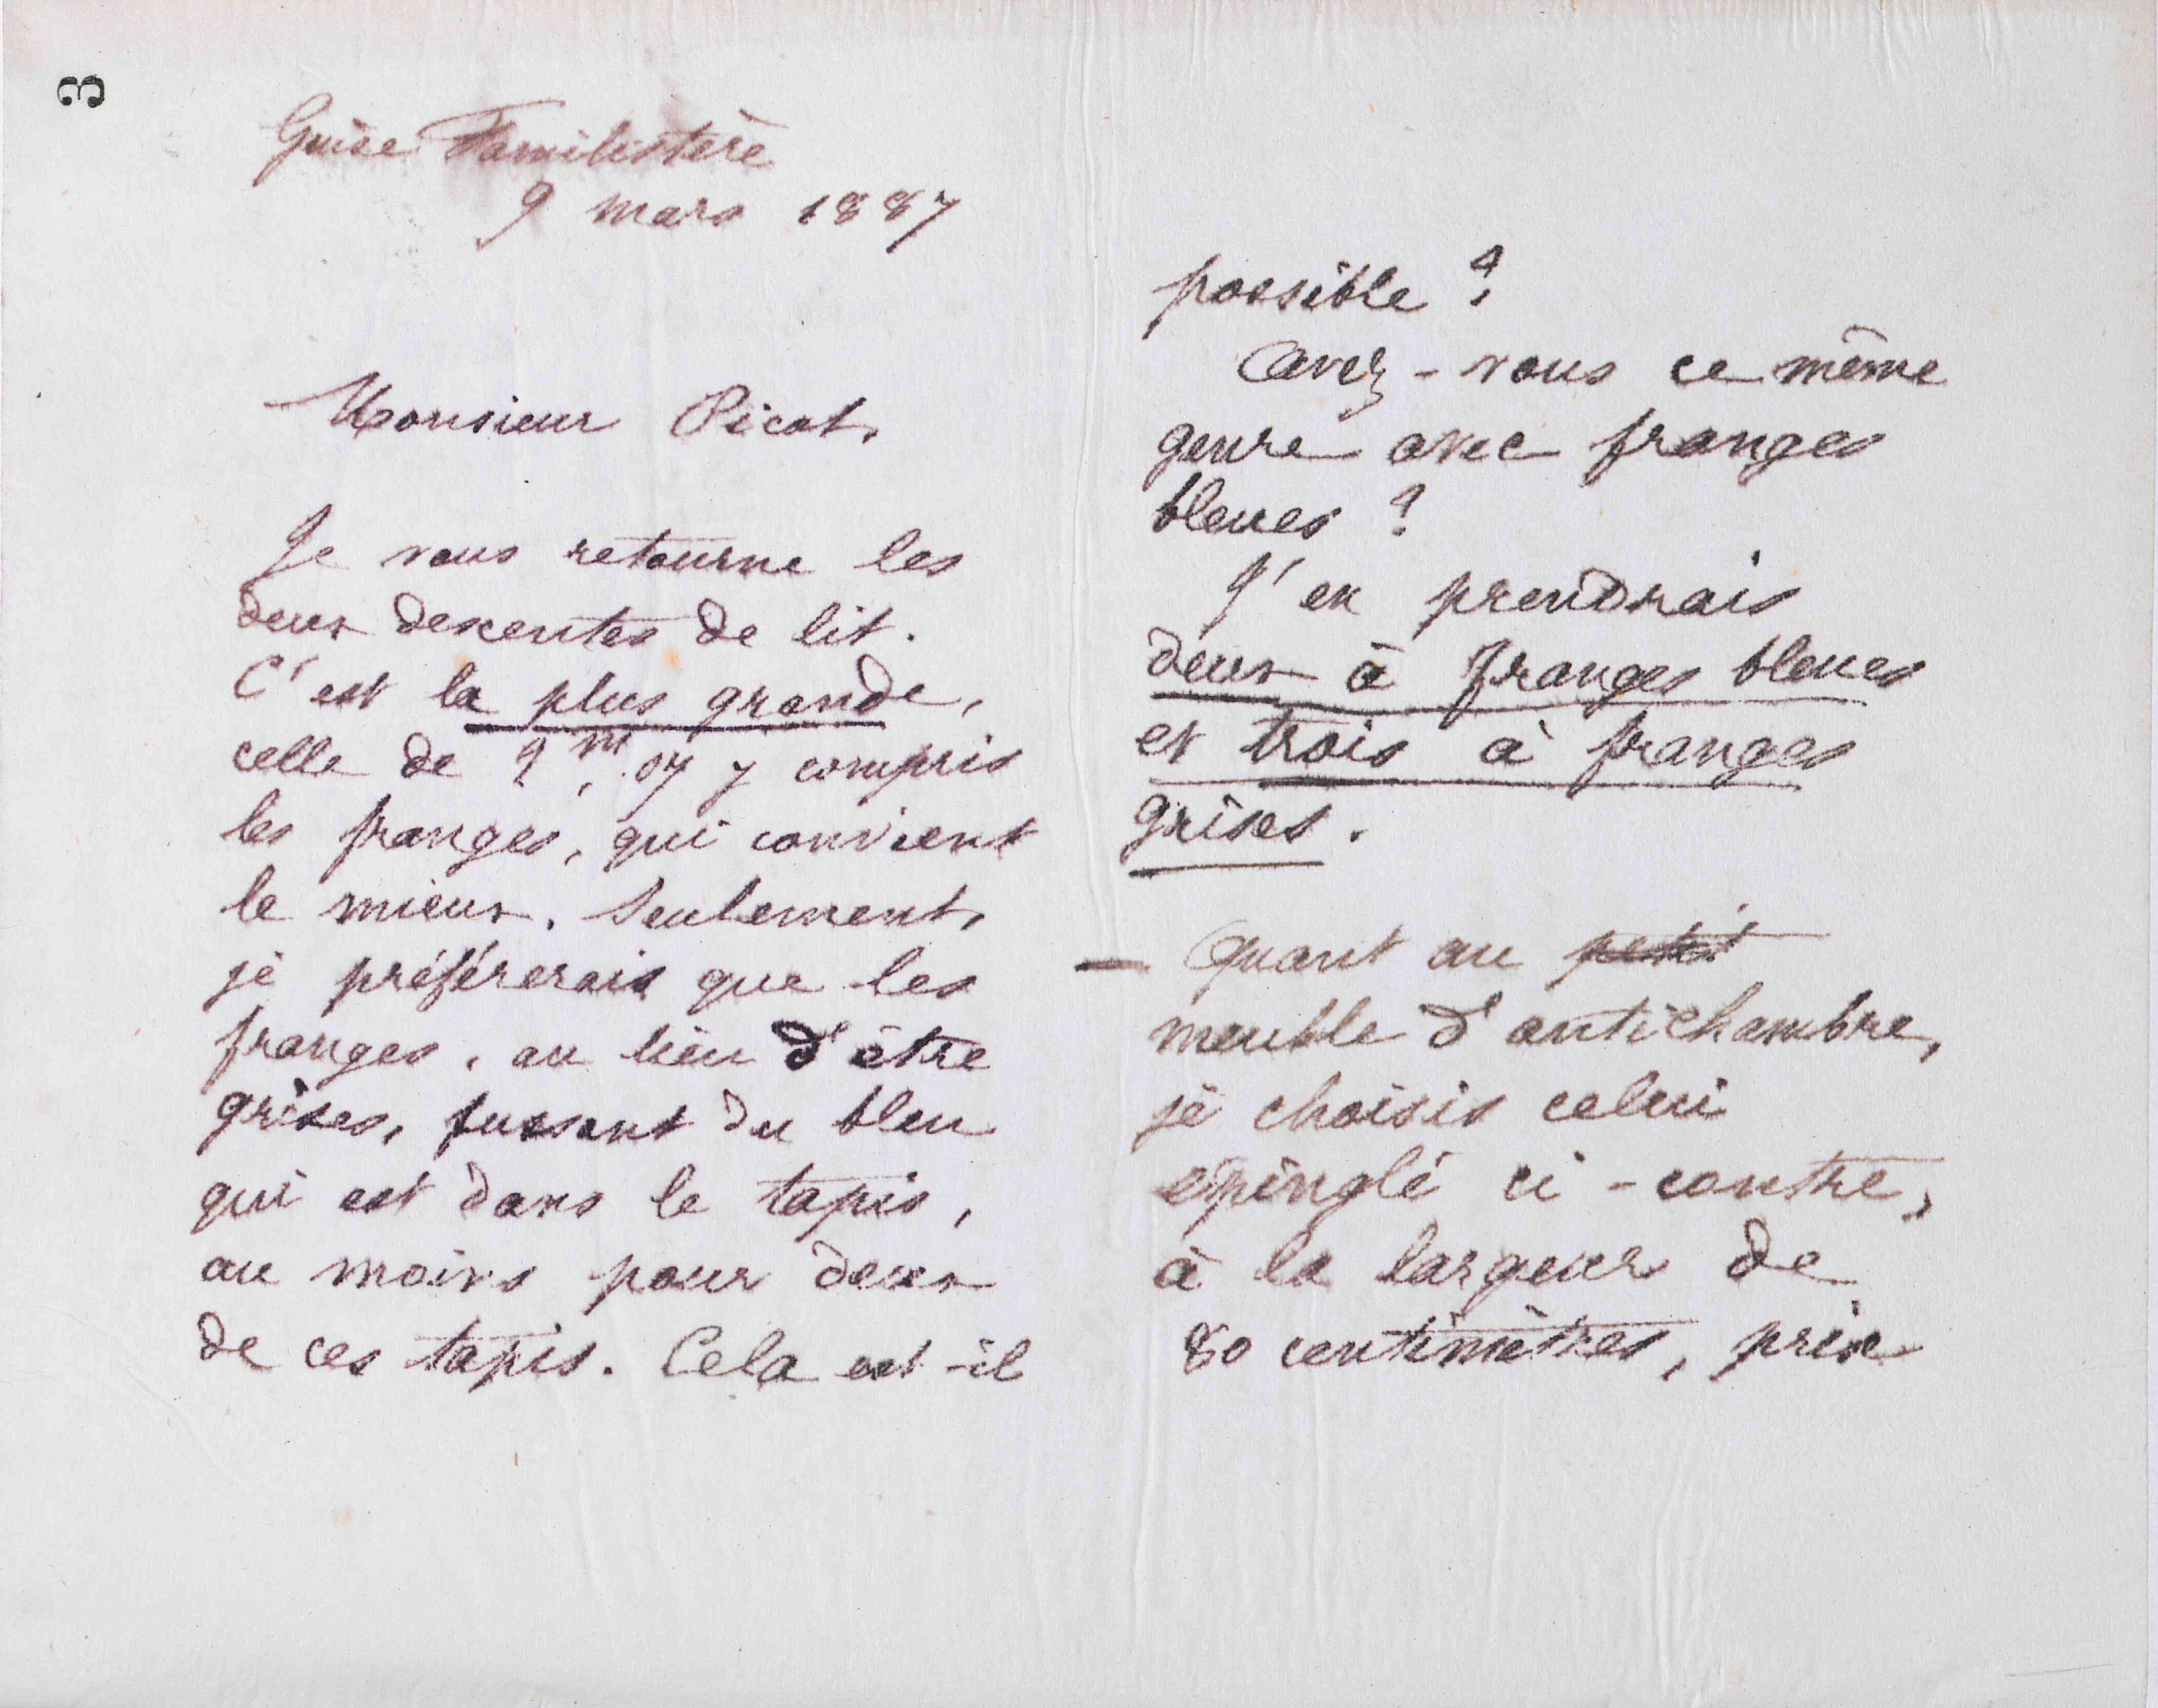 3
Guise Familistère
9 mars 1887
Monsieur Picat,
Je vous retourne les
deux descentes de lit.
C'est la plus grande,
celle de 2m,07 y compris
les franges, qui convient
le mieux. Seulement,
je préférerais que les
franges, au lieu d'être
grises, fussent du bleu
qui est dans le tapis,
au moins pour deux
de ces tapis. Cela est-il
possible ?
Avez-vous ce même
genre avec franges
bleues ?
J'en prendrais
deux à franges bleues
et trois à franges
grises.
— Quant au petit
meuble d'antichambre,
je choisis celui
épinglé ci-contre,
à la largeur de
80 centimètres, prix